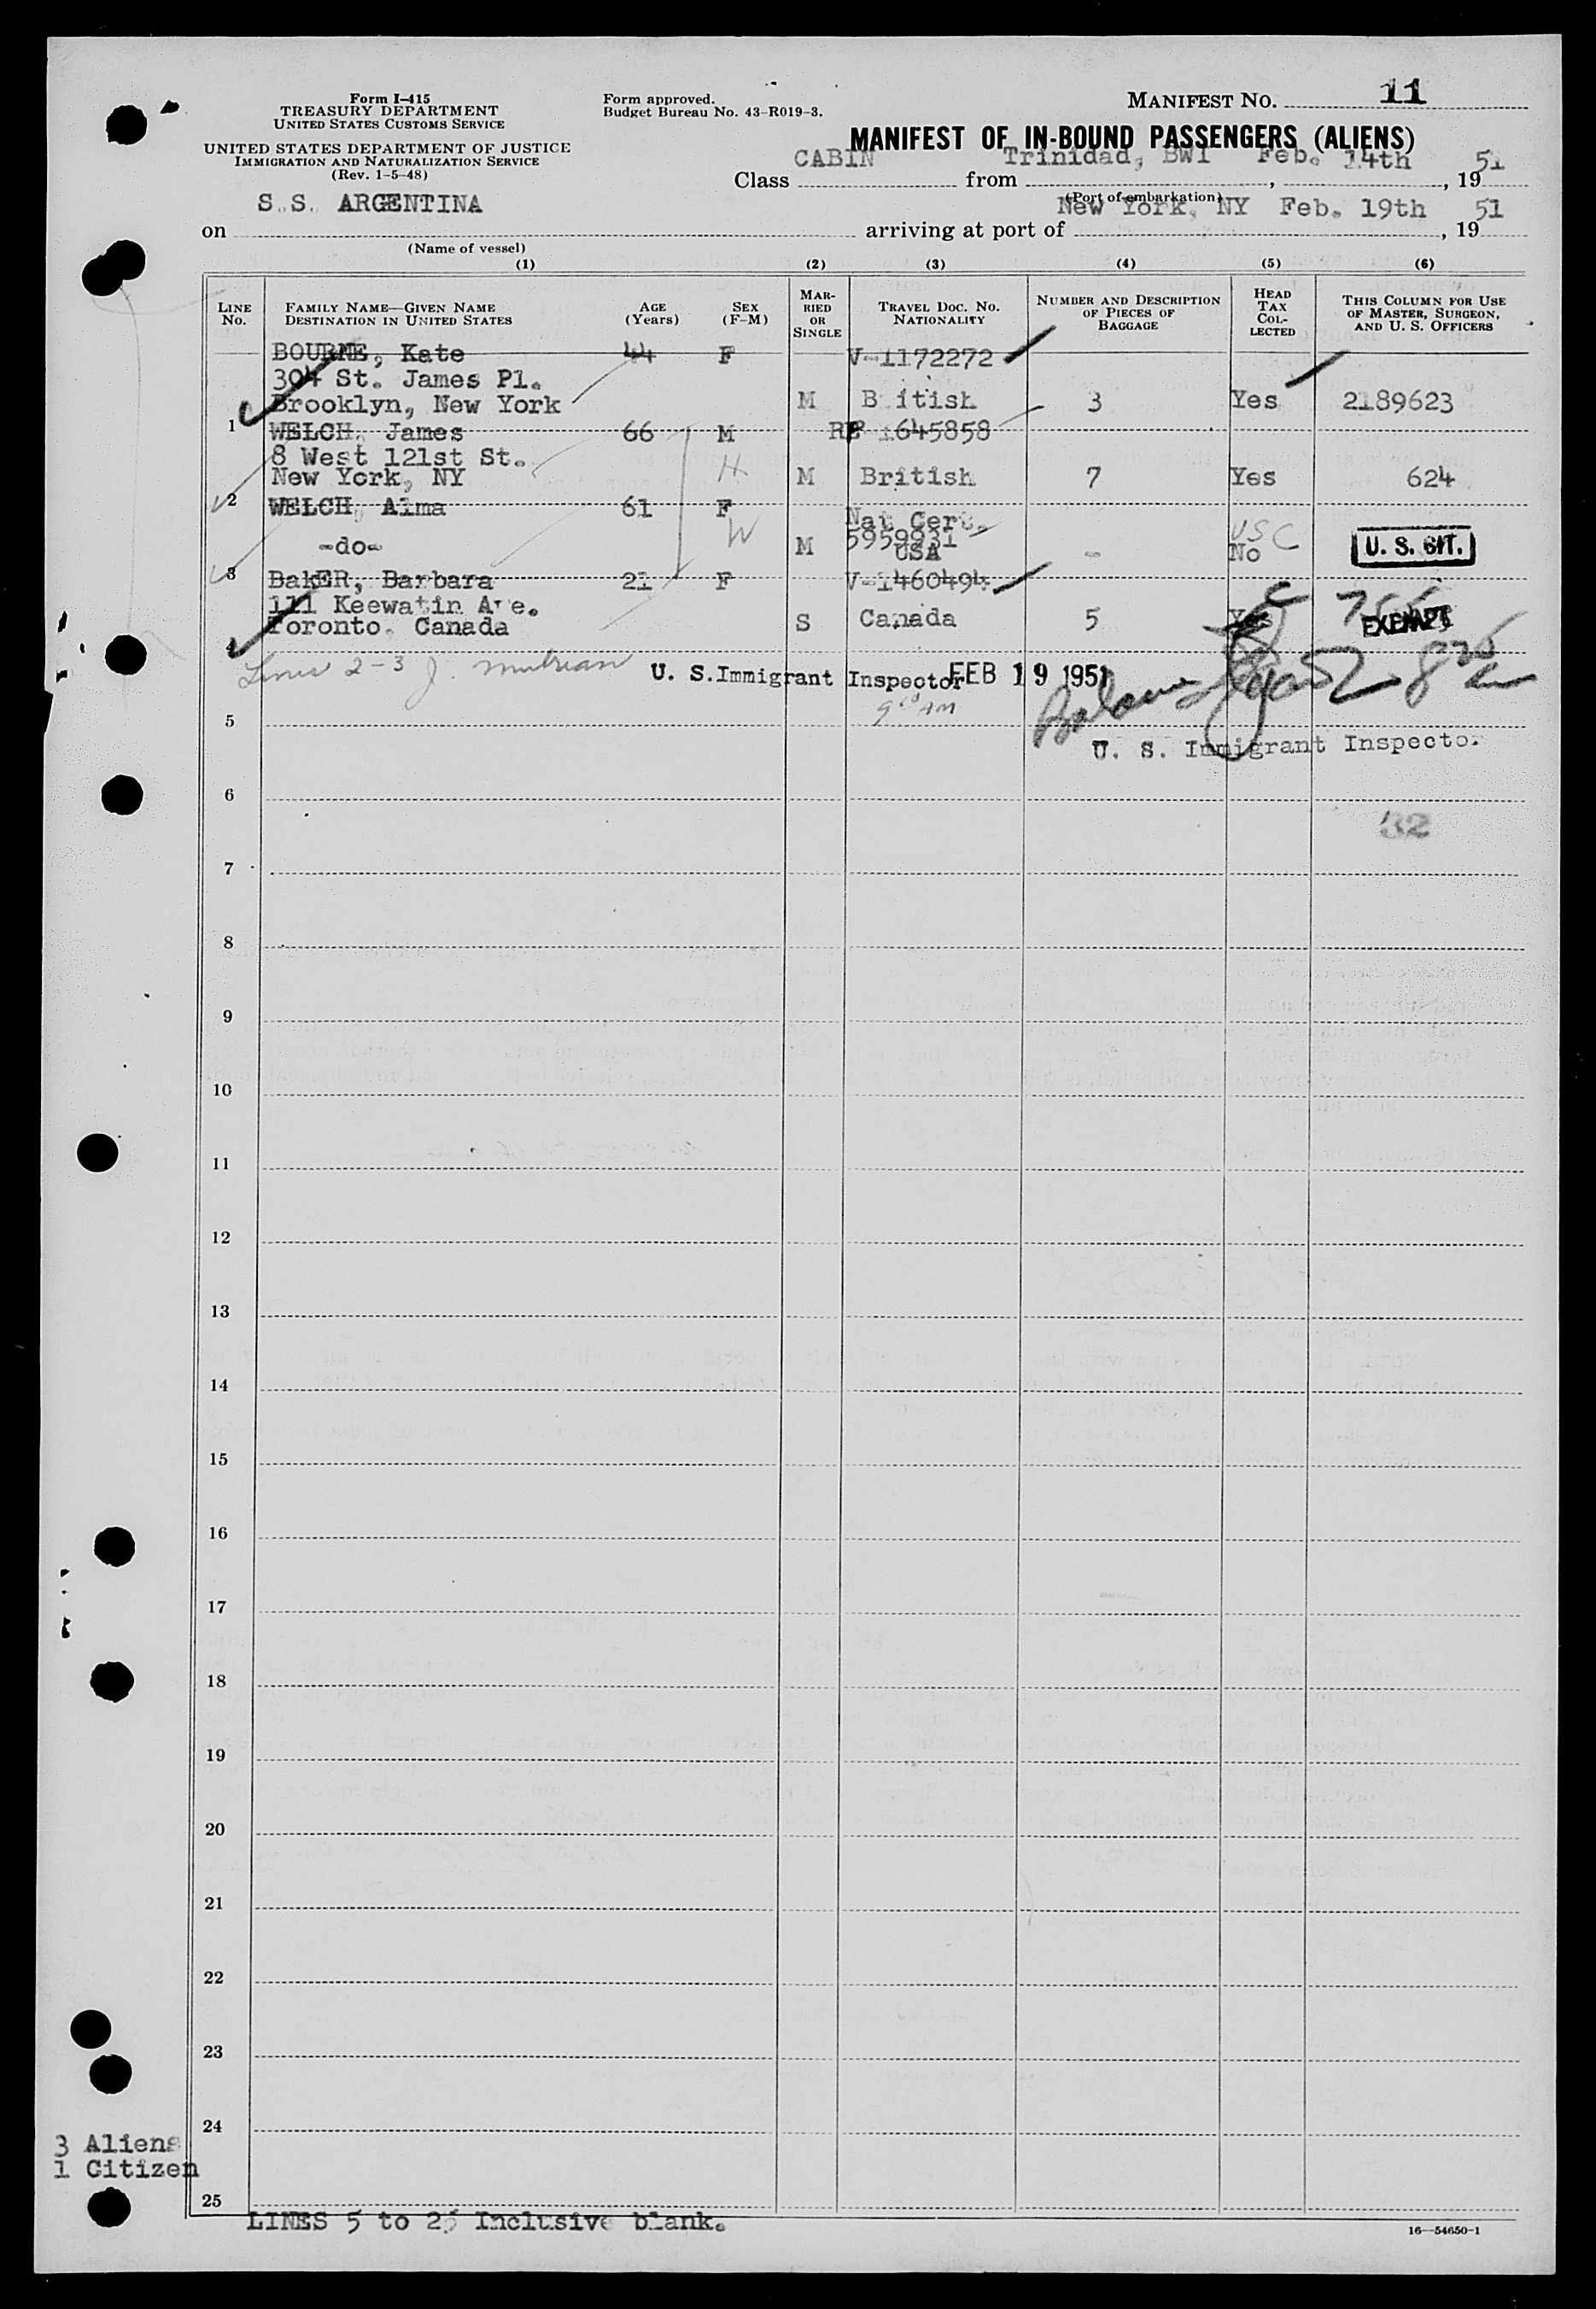 Form I-415
TREASURY DEPARTMENT
UNITED STATES CUSTOMS SERVICE
UNITED STATES DEPARTMENT OF JUSTICE
IMMIGRATION AND NATURALIZATION SERVICE
(Rev. 1-5-48)
Form approved.
Budget Bureau No. 43-R019-3.
MANIFEST NO. 11
MANIFEST OF IN-BOUND PASSENGERS (ALIENS)
Class CABIN from Trinidad, BWI Feb. 14th, 1951
(Port of embarkation)
on S.S. ARGENTINA arriving at port of New York, NY Feb. 19th, 1951
(Name of vessel)
(1) (2) (3) (4) (5) (6)
LINE No. FAMILY NAME—GIVEN NAME DESTINATION IN UNITED STATES AGE (Years) SEX (F-M) MARRIED OR SINGLE TRAVEL DOC. NO. NATIONALITY NUMBER AND DESCRIPTION OF PIECES OF BAGGAGE HEAD TAX COLLECTED THIS COLUMN FOR USE OF MASTER, SURGEON, AND U. S. OFFICERS
BOURNE, Kate 44 F V-1172272
304 St. James Pl.
Brooklyn, New York M British 3 Yes 2189623
1
WELCH, James 66 M RE 1645858
8 West 121st St. H
New York, NY M British 7 Yes 624
2
WELCH, Alma 61 F Nat Cert.
W 5959931 USC
-do- M USA - No U. S. CIT.
3
BakER, Barbara 21 F V-1460494
111 Keewatin Ave.
Toronto. Canada S Canada 5 Yes EXEMPT
4
Lines 2-3 J. U. S. Immigrant Inspector FEB 19 1951
9 AM
5
U. S. Immigrant Inspector
6
32
7
8
9
10
11
12
13
14
15
16
17
18
19
20
21
22
23
24
3 Aliens
1 Citizen
25
LINES 5 to 25 Inclusive blank.
16—54650-1